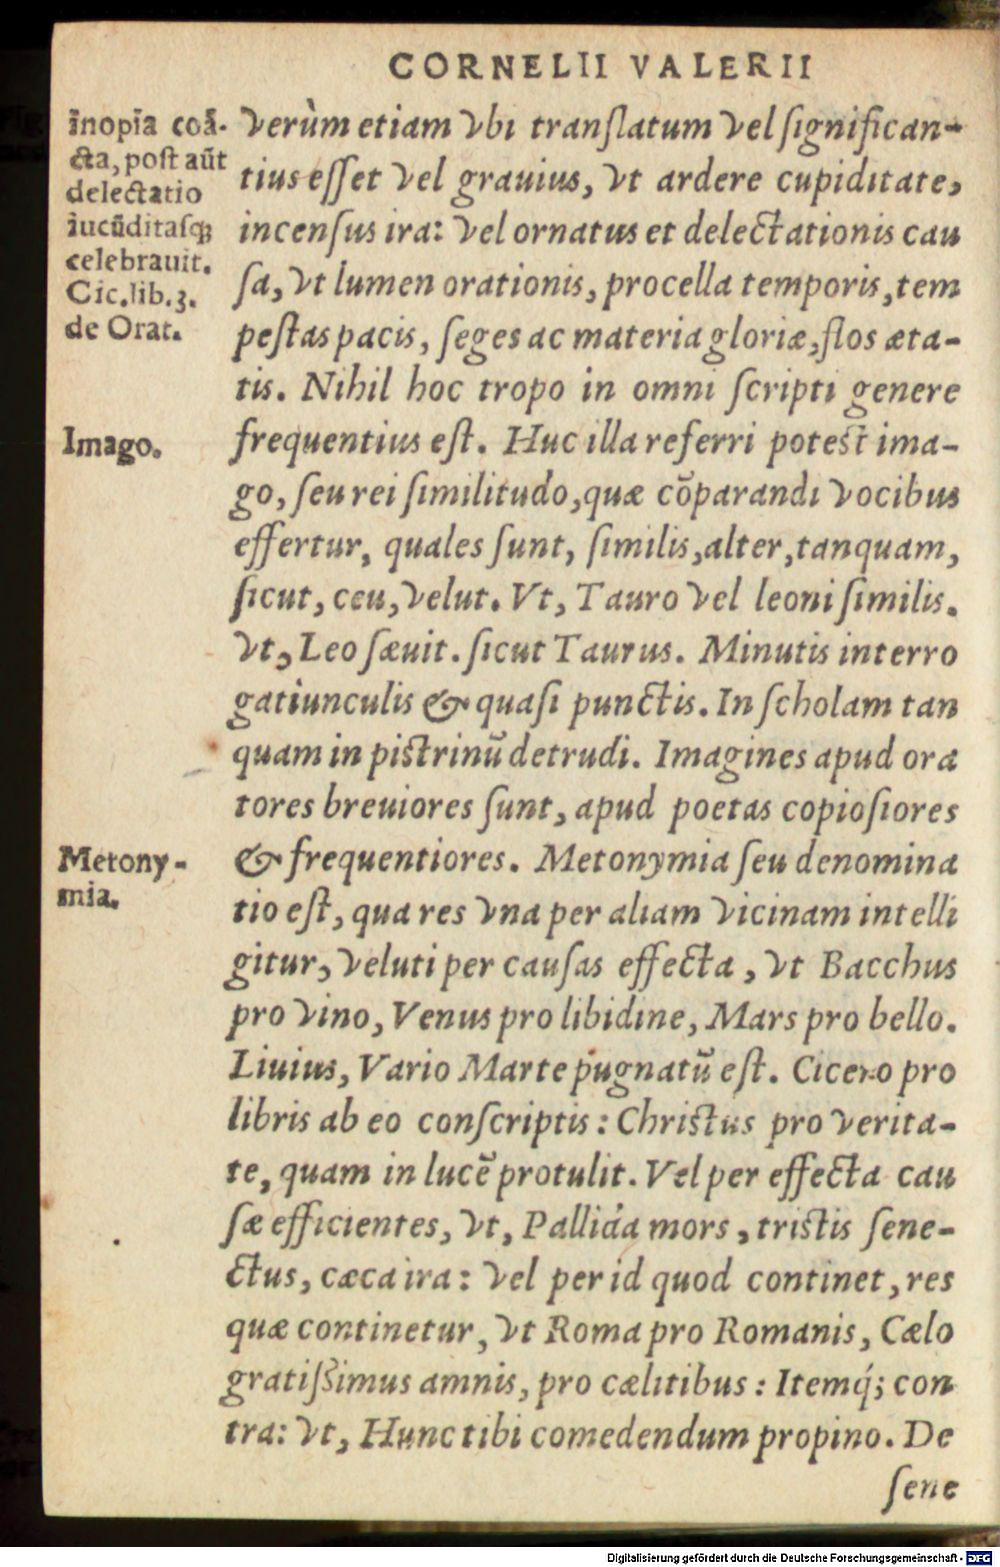 CORNELII VALERII
īnopīa coā-
cta, post aūt
delectatio
iucūditasq́;
celebrauit.
Cic. lib. 3.
de Orat.
verùm etiam vbi translatum vel significan-
tius esset vel grauius, vt ardere cupiditate,
incensus ira: vel ornatus et delectationis cau
sa, vt lumen orationis, procella temporis, tem
pestas pacis, seges ac materia gloriæ, flos æta-
tis. Nihil hoc tropo in omni scripti genere
Imago.
frequentius est. Huc illa referri potest ima-
go, seu rei similitudo, quæ cōparandi vocibus
effertur, quales sunt, similis, alter, tanquam,
sicut, ceu, velut. Vt, Tauro vel leoni similis.
vt, Leo sæuit. sicut Taurus. Minutis interro
gatiunculis & quasi punctis. In scholam tan
quam in pistrinū detrudi. Imagines apud ora
tores breuiores sunt, apud poetas copiosiores
Metony-
mia.
& frequentiores. Metonymia seu denomina
tio est, qua res vna per aliam vicinam intelli
gitur, veluti per causas effecta, vt Bacchus
pro vino, Venus pro libidine, Mars pro bello.
Liuius, Vario Marte pugnatū est. Cicero pro
libris ab eo conscriptis: Christus pro verita-
te, quam in lucē protulit. Vel per effecta cau
sæ efficientes, vt, Pallida mors, tristis sene-
ctus, cæca ira: vel per id quod continet, res
quæ continetur, vt Roma pro Romanis, Cælo
gratissimus amnis, pro cælitibus: Itemq́; con
tra: vt, Hunc tibi comedendum propino. De
sene
Digitalisierung gefördert durch die Deutsche Forschungsgemeinschaft - DFG